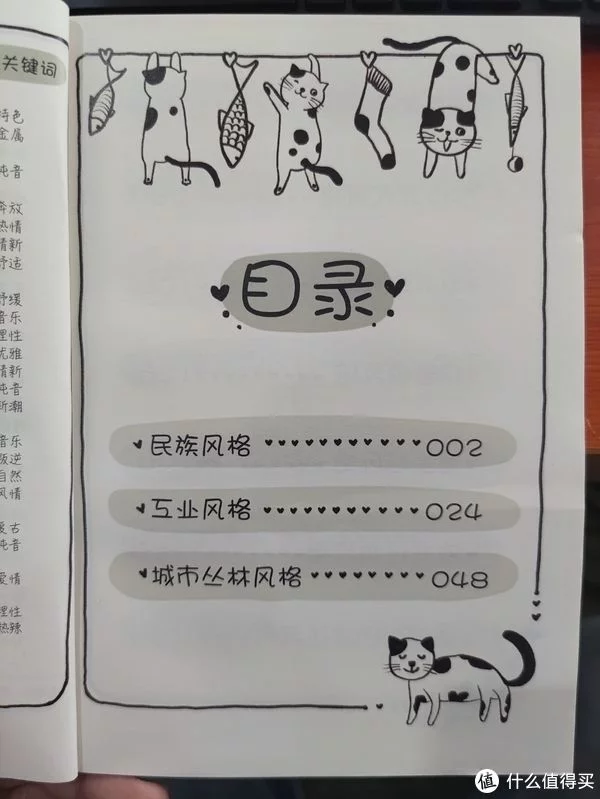 关键词
特色
金属
纯音
奔放
热情
清新
舒适
舒缓
音乐
理性
优雅
清新
纯音
新潮
音乐
叛逆
自然
风情
复古
纯音
爱情
理性
热辣
目录
民族风格 002
互业风格 024
城市丛林风格 048
值 什么值得买